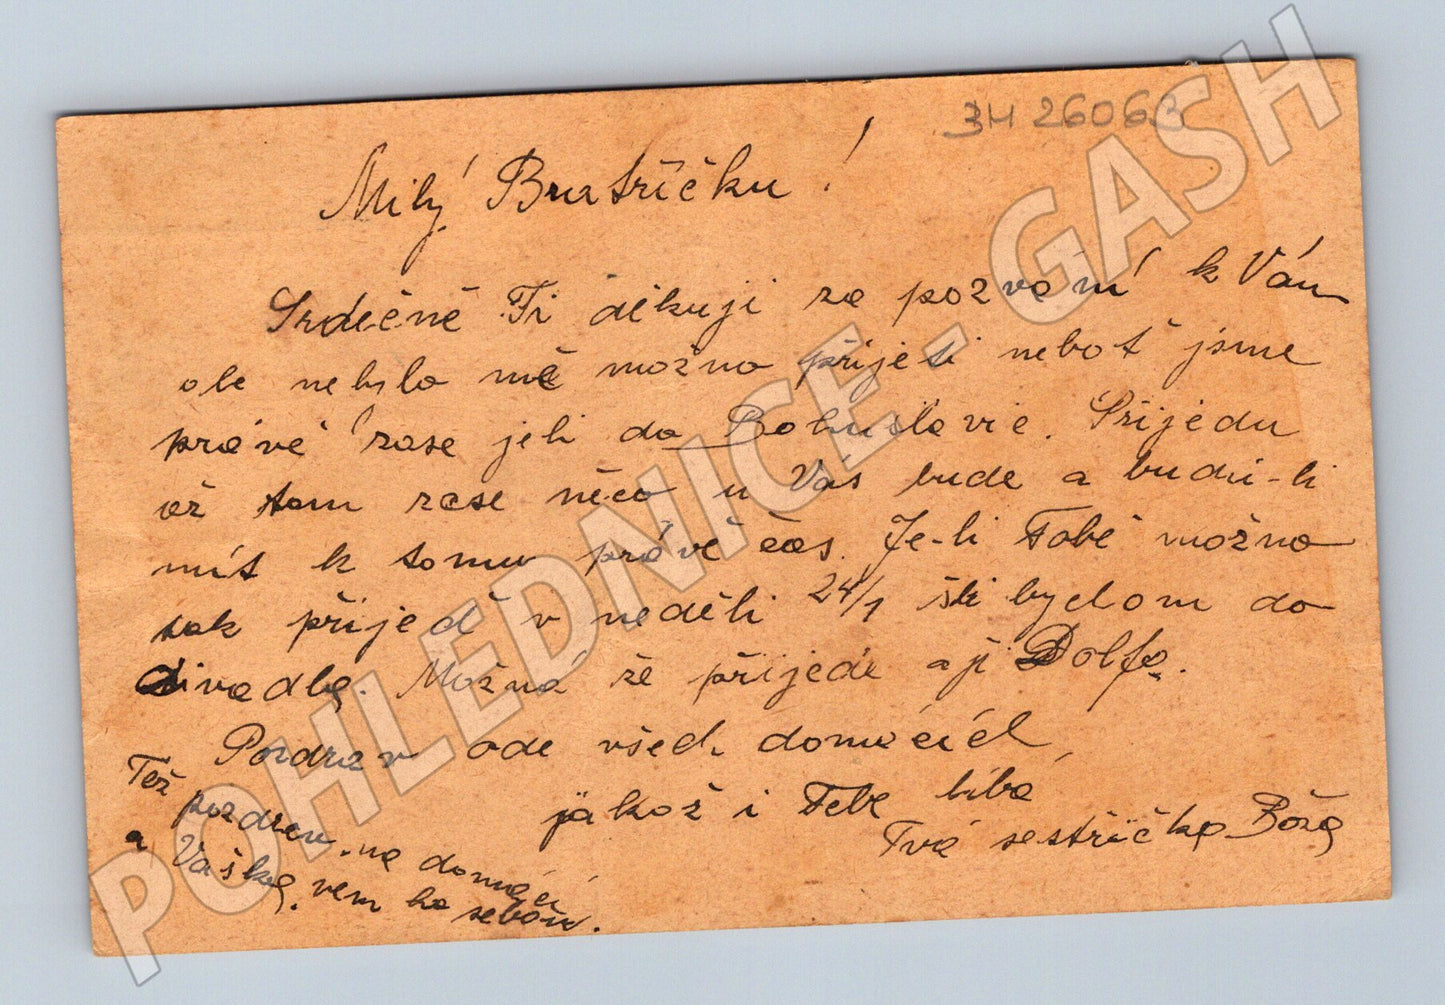 3H 26063
Milý Bratříčku!
Srdečně Ti děkuji za pozvání k Vám
ale nebylo mě možno přijeti neboť jsme
právě zase jeli do Bohuslavic. Přijedu
až tam zase něco u Vás bude a budu-li
mít k tomu právě čas. Je-li Tobě možno
tak přijeď v neděli 24/1 šli bychom do
divadla. Možná že přijede aji Dolfa.
Pozdrav ode všech domácích
jakož i Tebe líbá
Tvá sestřička Boža
Též pozdrav na domácí
a Vaška. vem ho sebou.
POHLEDNICE - GASH